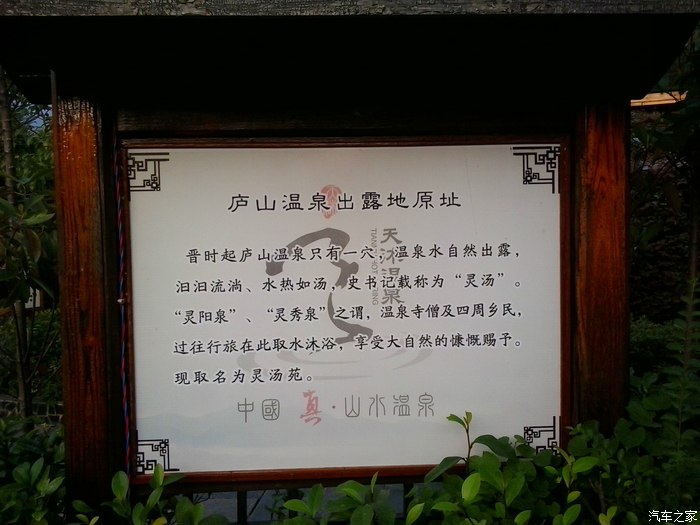 庐山温泉出露地原址
晋时起庐山温泉只有一穴，温泉水自然出露，
汩汩流淌、水热如汤，史书记载称为“灵汤”。
“灵阳泉”、“灵秀泉”之谓，温泉寺僧及四周乡民，
过往行旅在此取水沐浴，享受大自然的慷慨赐予。
现取名为灵汤苑。
天沐温泉
中國 真·山水温泉
汽车之家